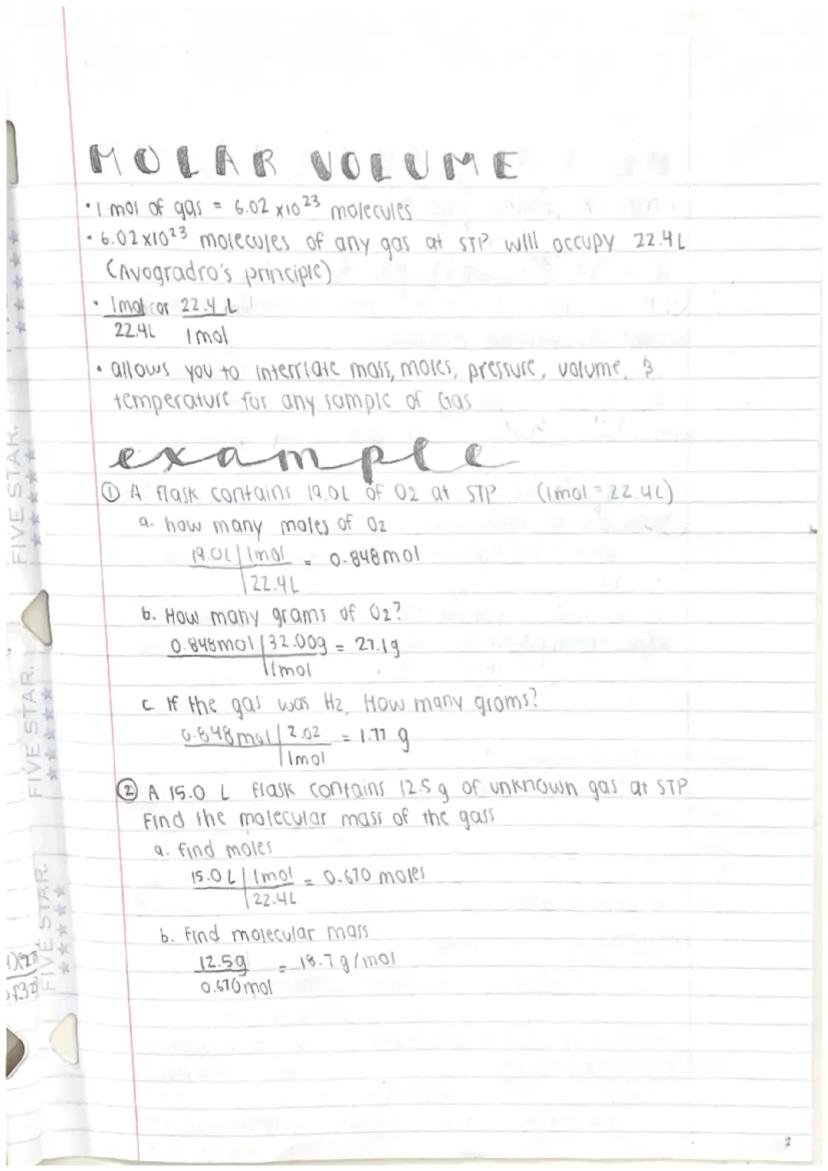 MOLAR VOLUME
• 1 mol of gas = 6.02 x10²³ molecules
• 6.02x10²³ molecules of any gas at STP will occupy 22.4L
(Avogradro's principle)
• 1mol or 22.4 L
22.4L 1 mol
• allows you to interrlate mass, moles, pressure, volume, &
temperature for any sample of Gas
example
① A flask contains 19.0L of O2 at STP (1mol = 22.4L)
a. how many moles of O2
19.0L | 1mol = 0.848mol
22.4L
b. How many grams of O2?
0.848mol | 32.00g = 27.1g
1mol
c. If the gas was H2, How many grams?
0.848mol | 2.02 = 1.77 g
1mol
② A 15.0 L flask contains 12.5g of unknown gas at STP
Find the molecular mass of the gass
a. find moles
15.0L | 1mol = 0.670 moles
22.4L
b. Find molecular mass
12.5g = 18.7g/mol
0.670mol
FIVE STAR.
FIVE STAR.
FIVE STAR.